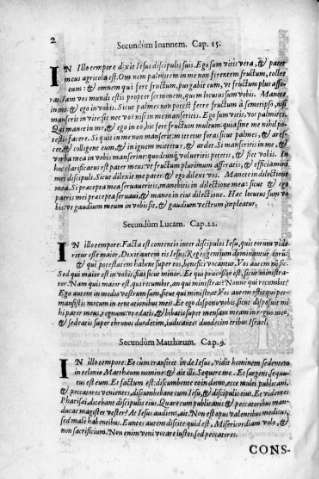 2
Secundum Ioannem. Cap. 15.
IN Illo tempore dixit Iesus discipulis suis. Ego sum vitis vera, & pater
meus agricola est. Omnem palmitem in me non ferentem fructum, tollet
eum: & omnem qui fert fructum, purgabit eum, vt fructum plus affe-
rat. Iam vos mundi estis propter sermonem, quem locutus sum vobis. Manete
in me, & ego in vobis. Sicut palmes non potest ferre fructum à semetipso, nisi
manserit in vite: sic nec vos nisi in me manseritis. Ego sum vitis, vos palmites.
Qui manet in me, & ego in eo, hic fert fructum multum: quia sine me nihil po-
testis facere. Si quis in me non manserit: mittetur foras sicut palmes, & aref-
cet, & colligent eum, & in ignem mittent, & ardet. Si manseritis in me, &
verba mea in vobis manserint: quodcunq; volueritis petetis, & fiet vobis. In
hoc clarificatus est pater meus: vt fructum plurimum afferatis, & efficiamini
mei discipuli. Sicut dilexit me pater: & ego dilexi vos. Manete in dilectione
mea. Si præcepta mea seruaueritis, manebitis in dilectione mea: sicut & ego
patris mei præcepta seruaui, & maneo in eius dilectione. Hæc locutus sum vo-
bis: vt gaudium meum in vobis sit, & gaudium vestrum impleatur.
Secundum Lucam. Cap. 22.
IN illo tempore. Facta est contentio inter discipulos Iesu, quis eorum vide-
retur esse maior. Dixit autem eis Iesus: Reges gentium dominantur eorũ:
& qui potestatem habent super eos, benefici vocantur. Vos autem nõ sic.
Sed qui maior est in vobis, fiat sicut minor. Et qui præcessor est, sicut ministra-
tor. Nam quis maior est, qui recumbit, an qui ministrat? Nonne qui recumbit?
Ego autem in medio vestrum sum, sicut qui ministrat. Vos autem estis qui per-
mansistis mecum in tentationibus meis. Et ego dispono vobis, sicut disposuit mi
hi pater meus, regnum: vt edatis & bibatis super mensam meam in regno meo,
& sedeatis super thronos duodecim, iudicantes duodecim tribus Israel.
Secundum Matthæum. Cap. 9.
IN illo tempore. Et cum transiret inde Iesus, vidit hominem sedentem
in telonio Matthæum nomine: & ait illi. Sequere me. Et surgens sequu-
tus est eum. Et factum est: discumbente eo in domo, ecce multi publicani,
& peccatores venientes, discumbebant cum Iesu, & discipulis eius. Et videntes
Pharisæi, dicebant discipulis eius. Quare cum publicanis & peccatoribus man-
ducat magister vester? At Iesus audiens, ait. Non est opus valentibus medicus,
sed male habentibus. Euntes autem discite quid est, Misericordiam volo, &
non sacrificium. Non enim veni vocare iustos, sed peccatores.
CONS-